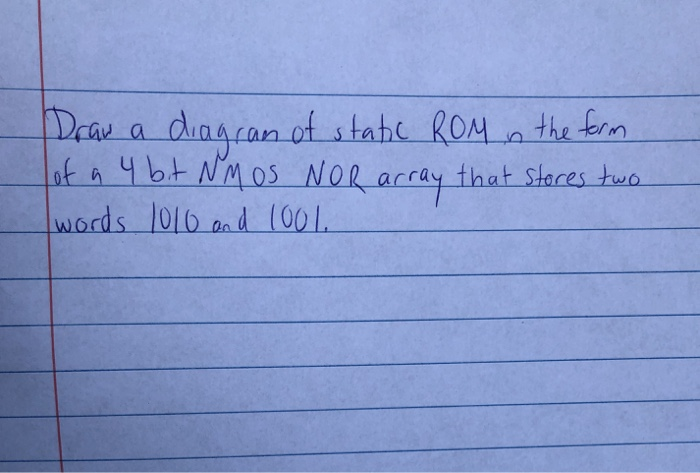 Draw a diagram of static ROM in the form
of a 4 bit NMOS NOR array that stores two
words 1010 and 1001.